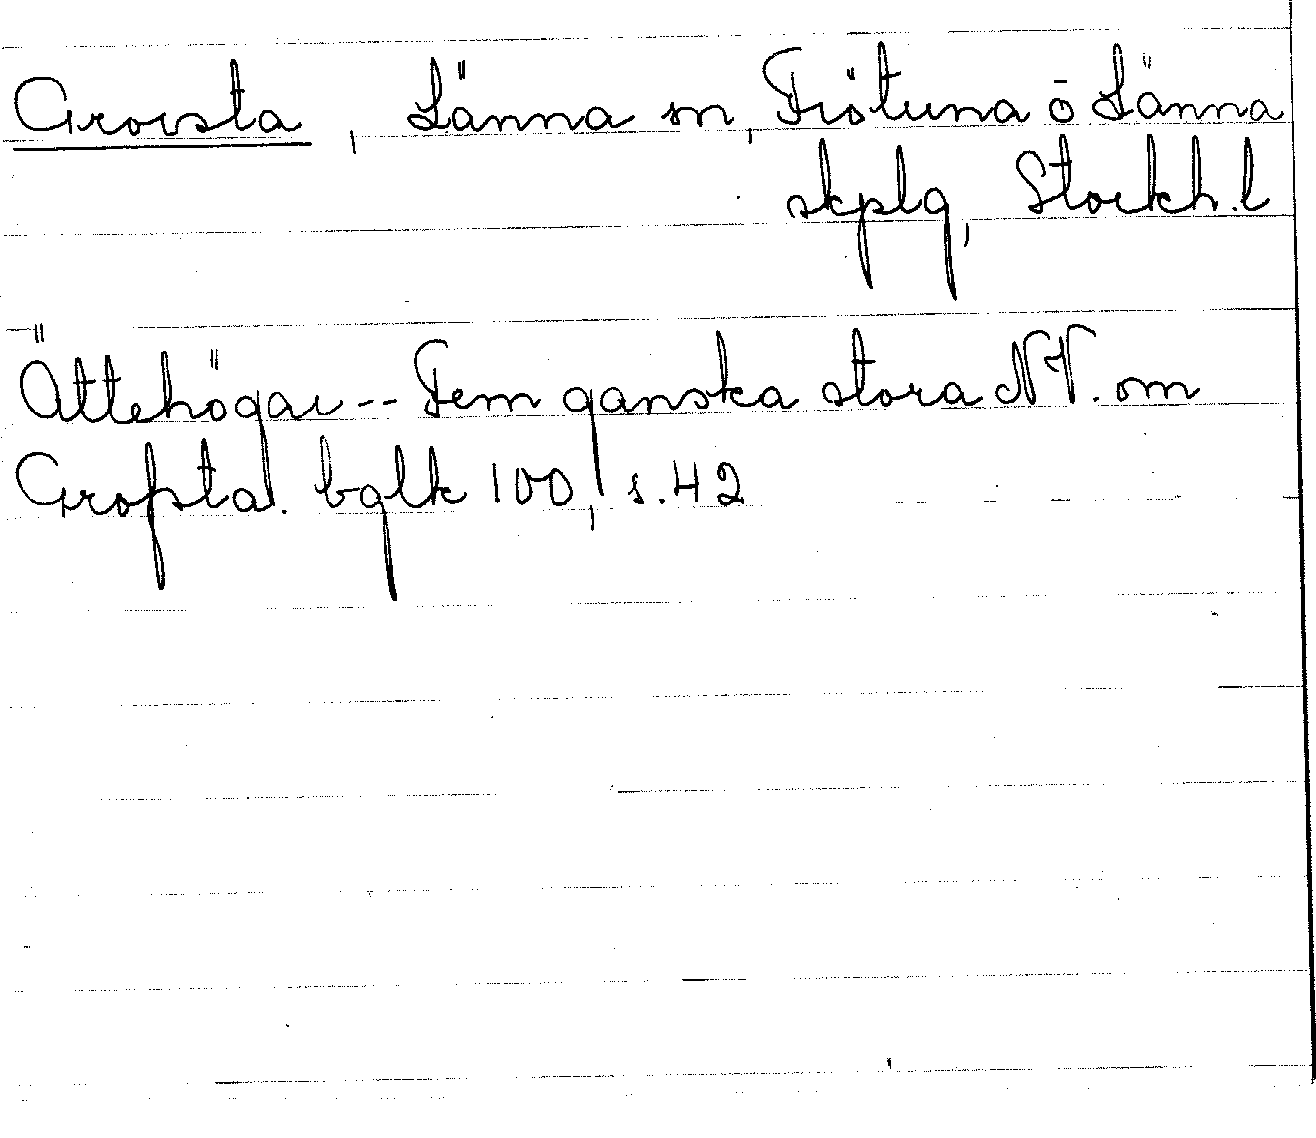 Grovsta, Länna sn, Frötuna o Länna
skplg, Stockh.l
Ättehögar -- Fem ganska stora NV. om
Grofsta. bglk 100, s. 42